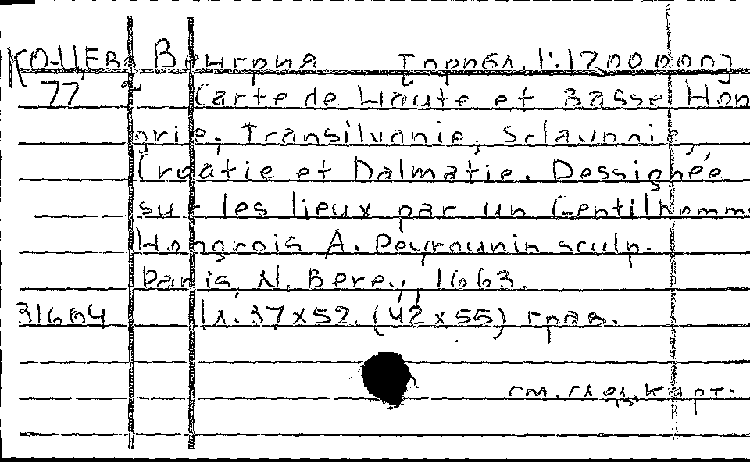 Ко-Цев. Венгрия [прибл. 1:1200000]
77 Carte de Haute et Basse Hon
grie, Transilvanie, Sclavonie,
Croatie et Dalmatie. Dessignée
sur les lieux par un Gentilhomme
Hongrois A. Peyrounin sculp.
Paris, N. Berey, 1663.
31604 1 л. 37x52. (42x55) грав.
см. след. карт.